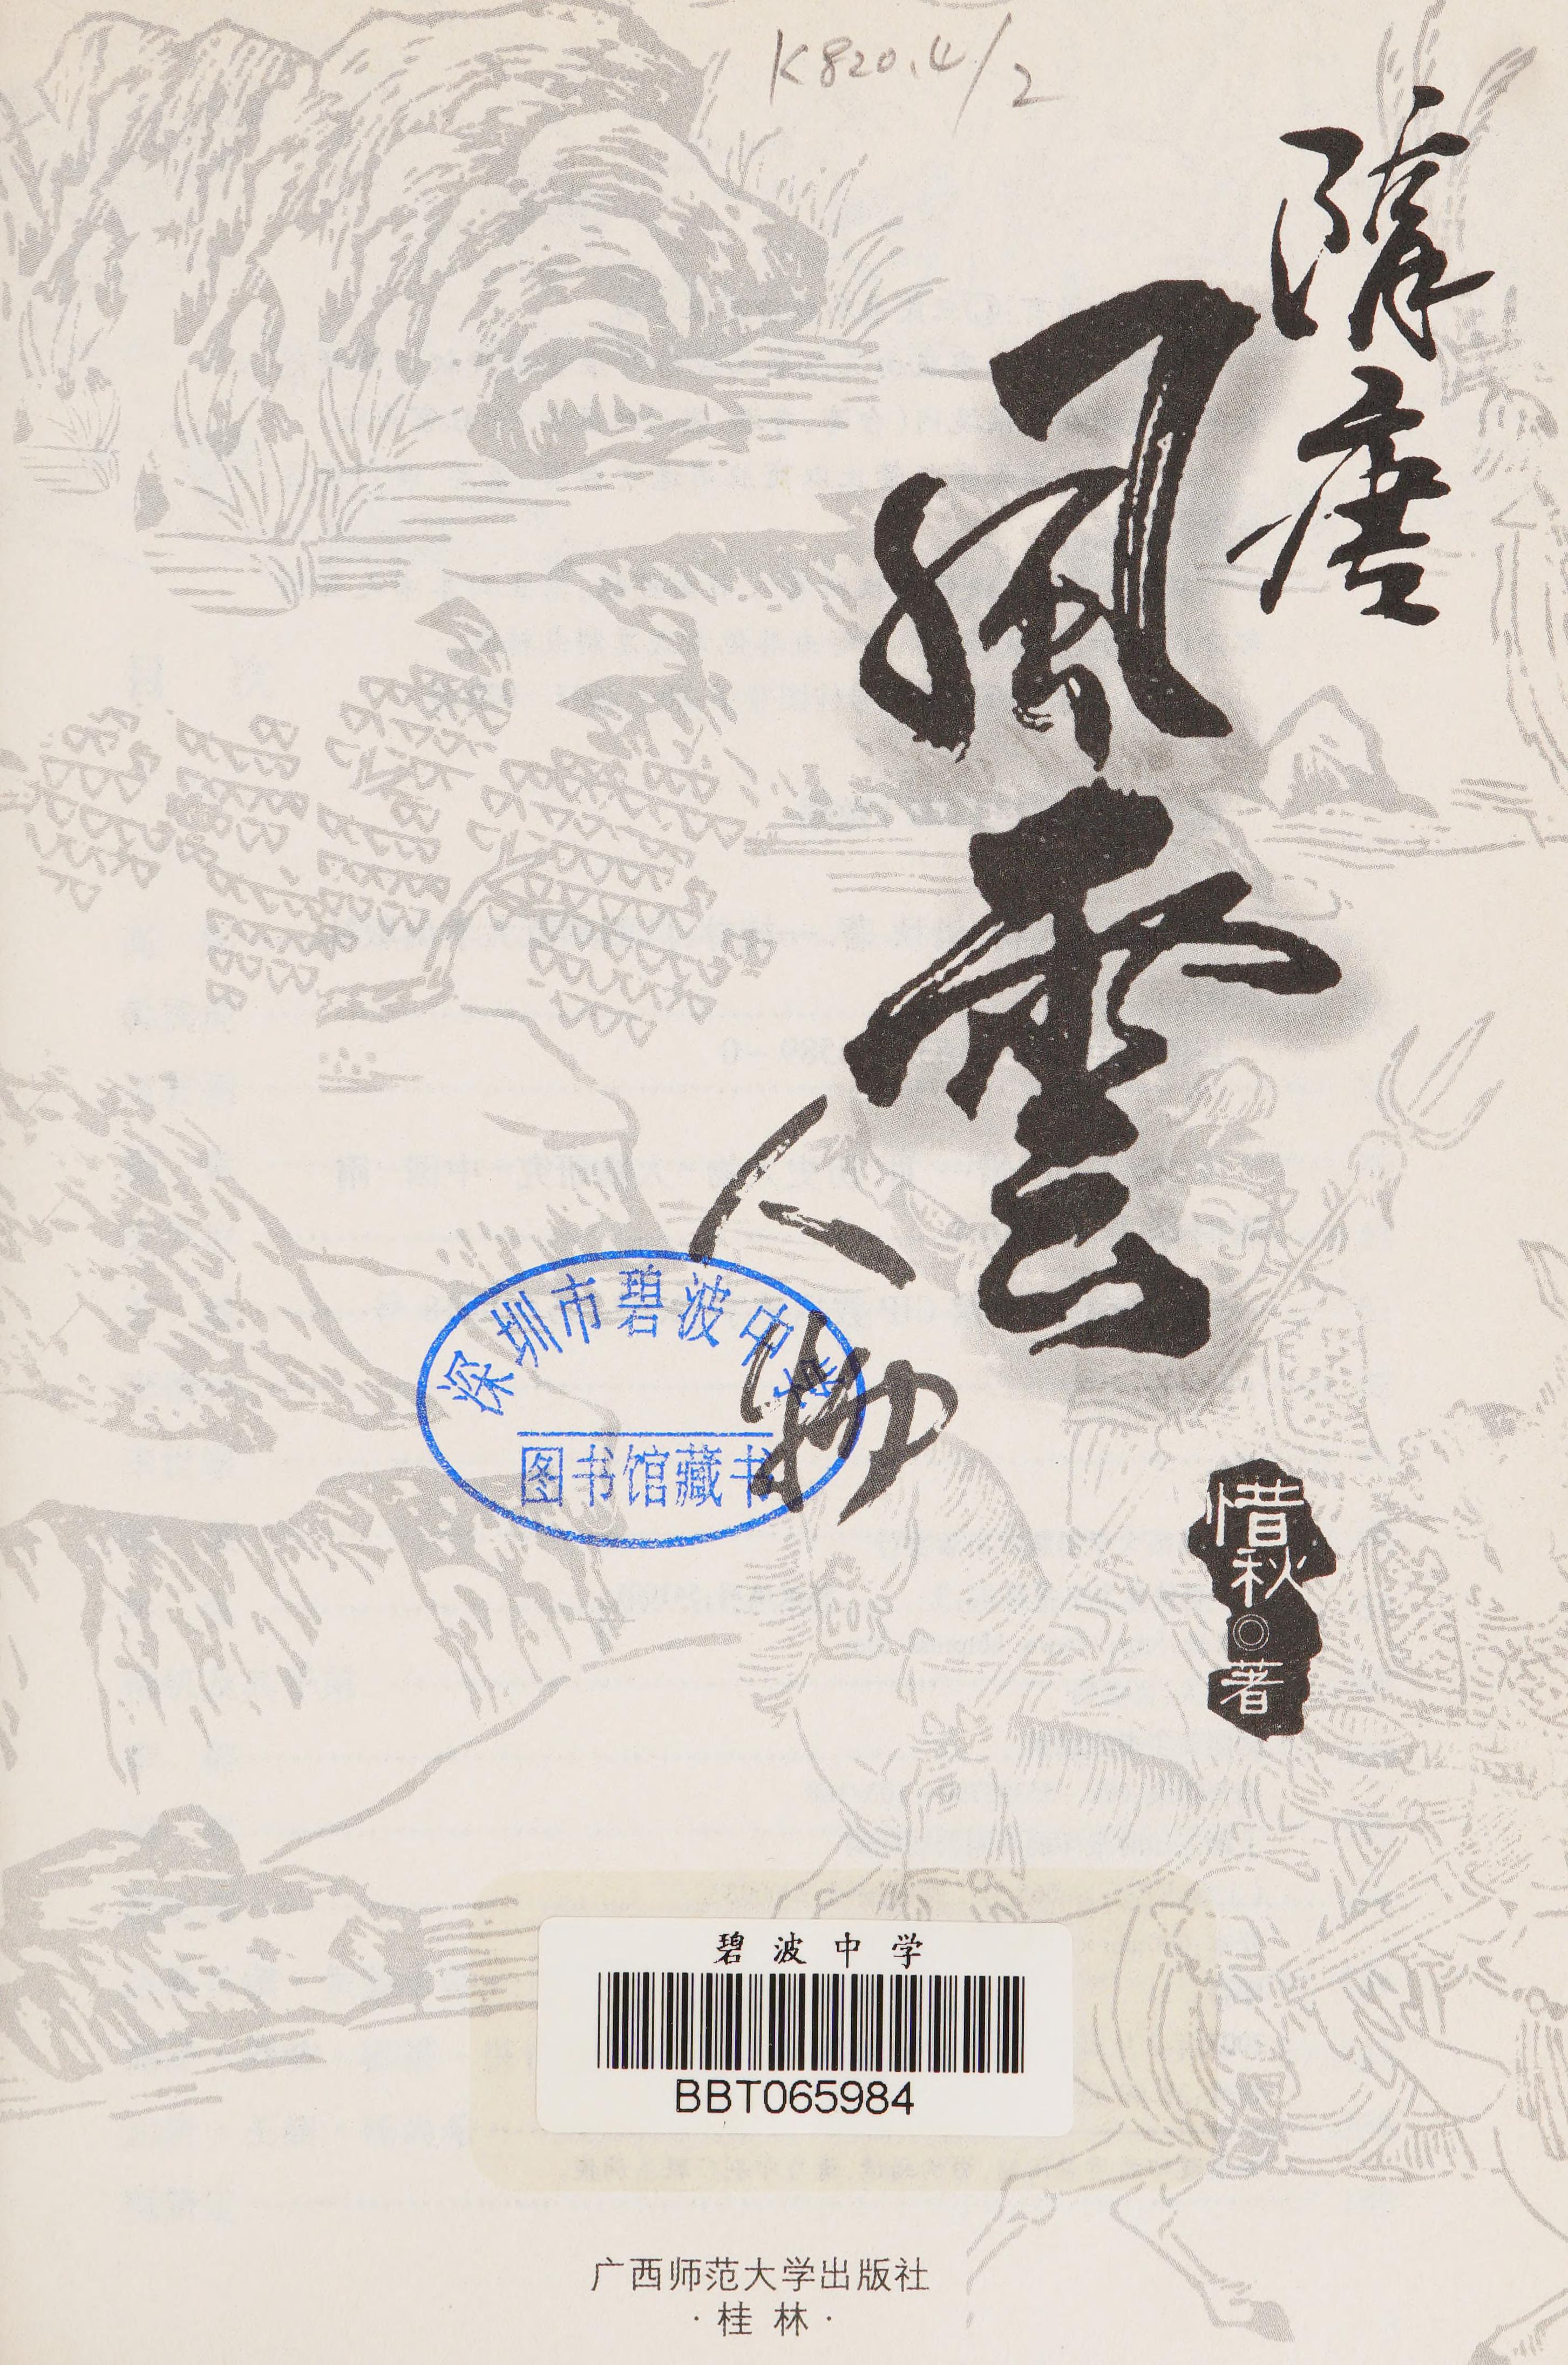 K820.4/2
隋唐
風雲
人物
深圳市碧波中学
图书馆藏书
惜秋◎著
碧波中学
BBT065984
广西师范大学出版社
·桂林·